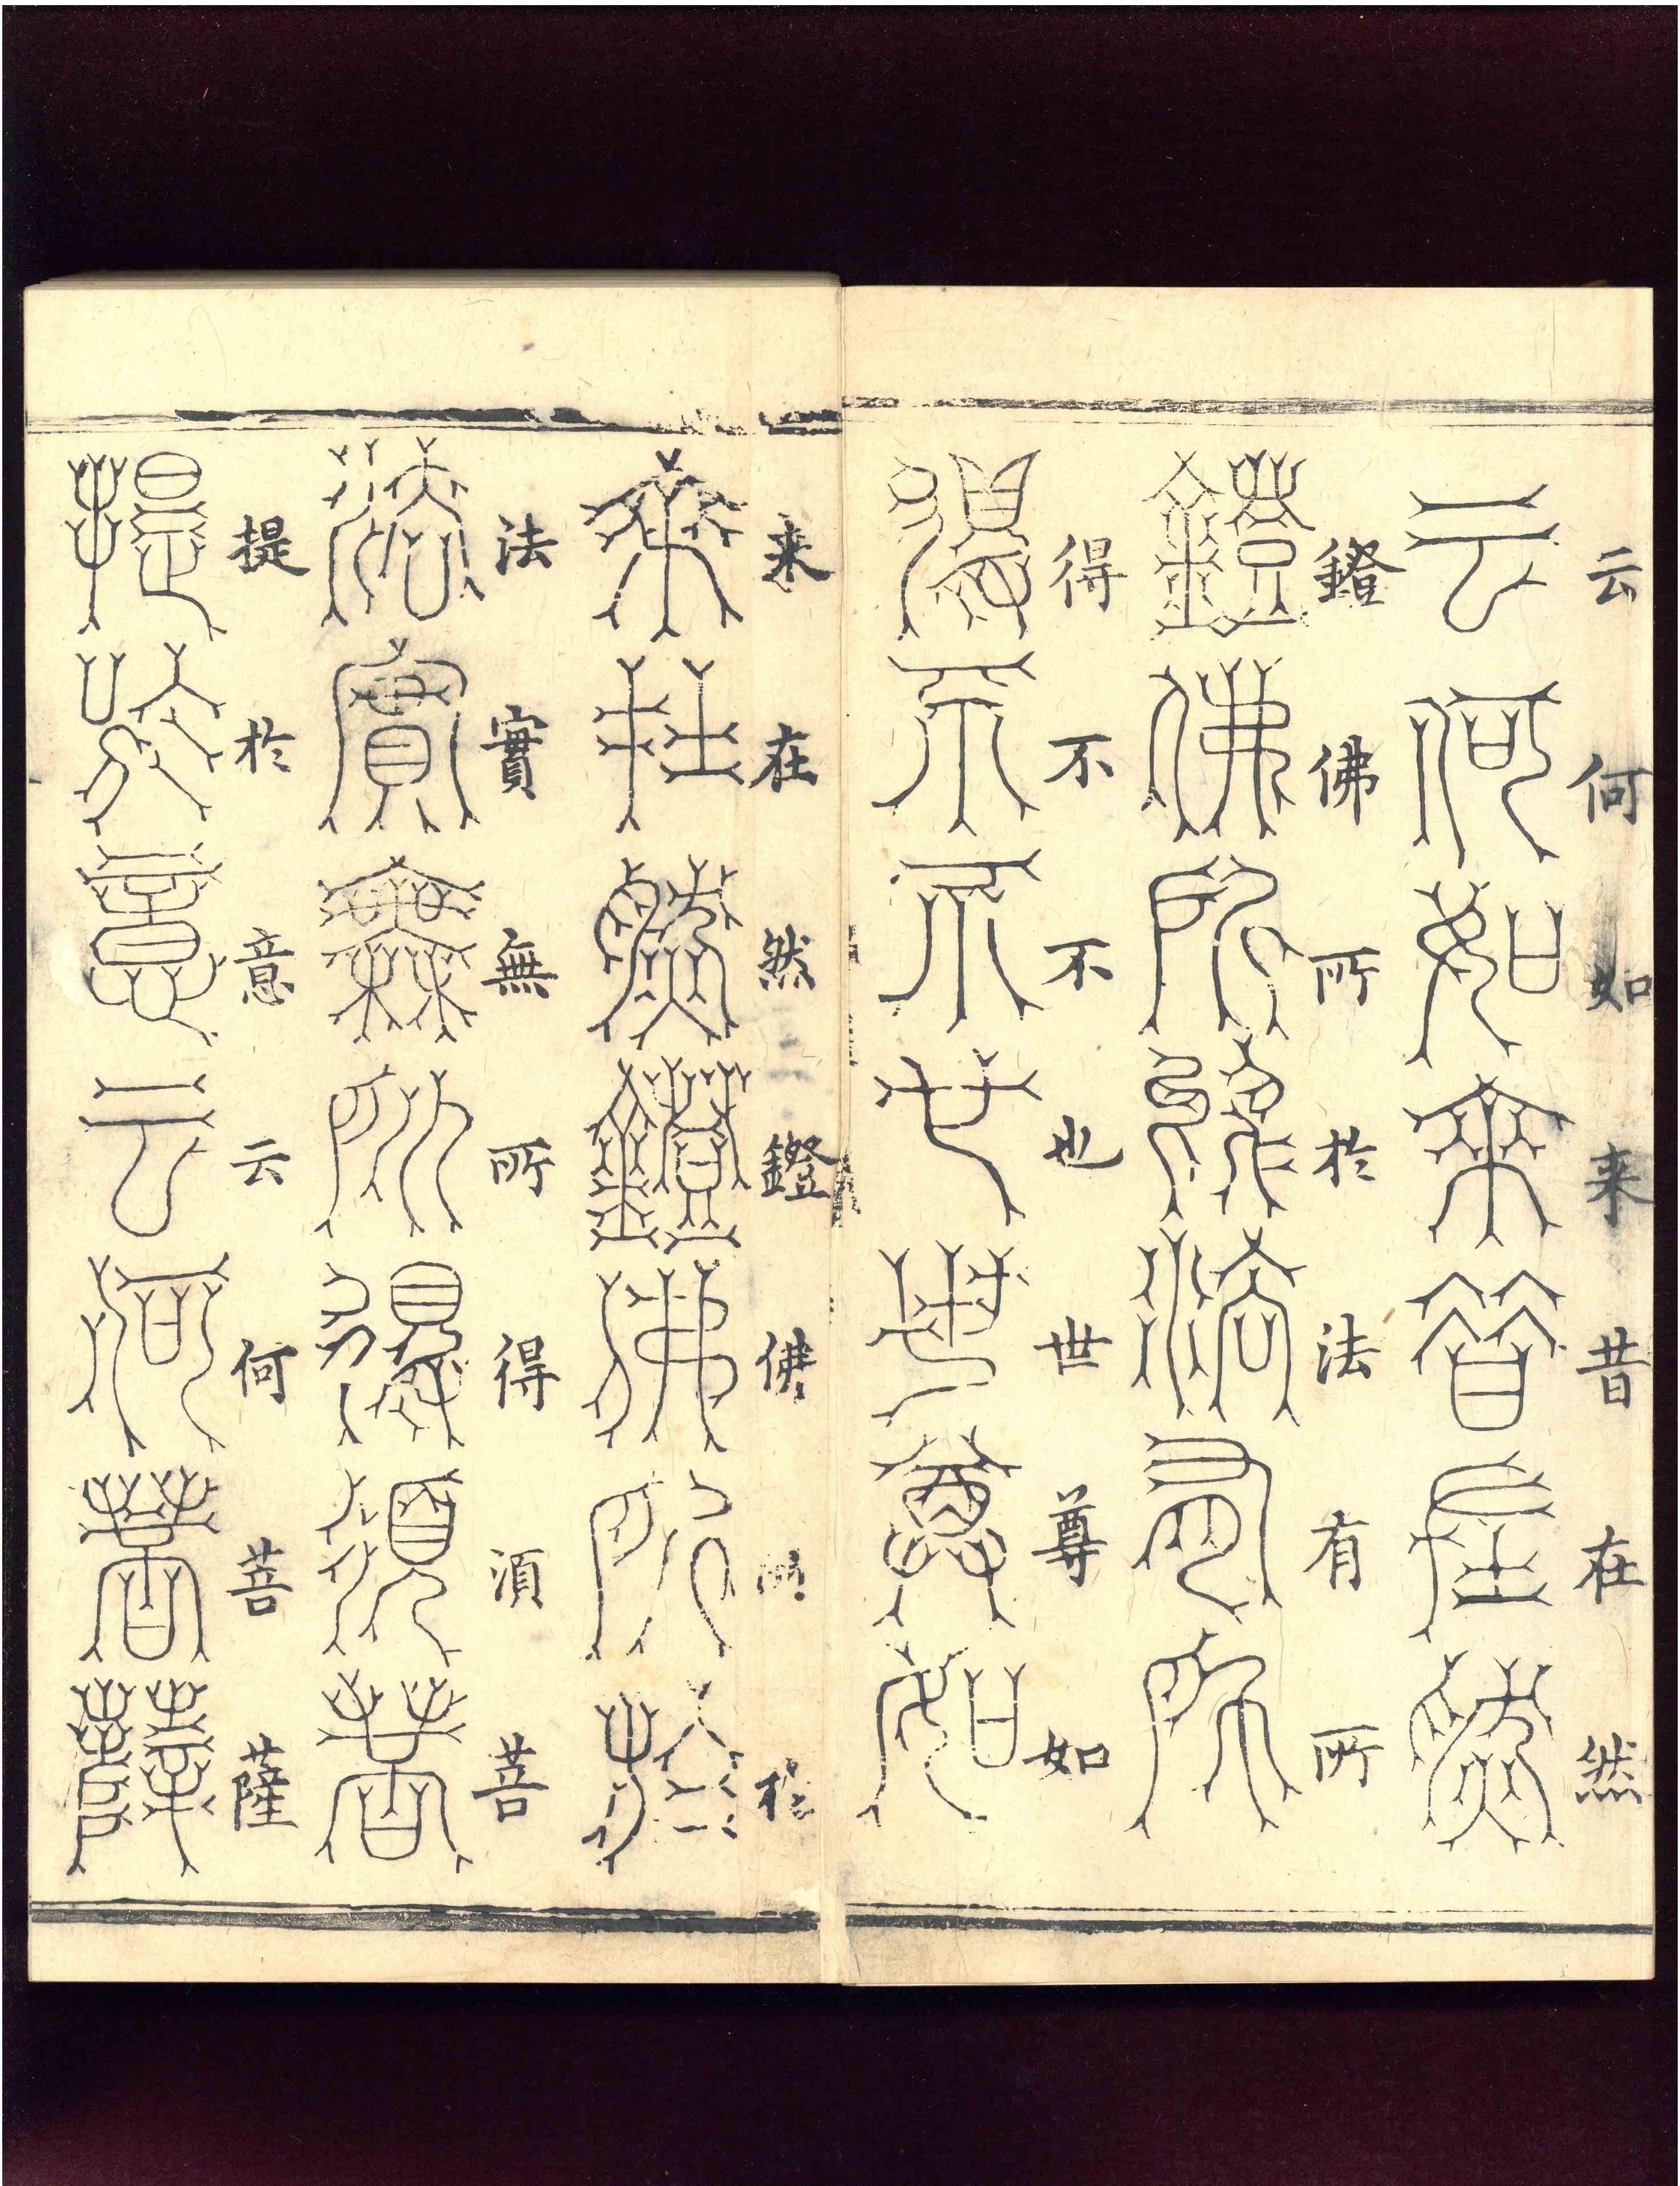 云何如来昔在然
云何如來昔在然
鐙佛所於法有所
鐙佛所於法有所
得不不也世尊如
得不不也世尊如
来在然鐙佛於
來在然鐙佛所於
法實無所得湏菩
法實無所得須菩
提於意云何菩薩
提於意云何菩薩